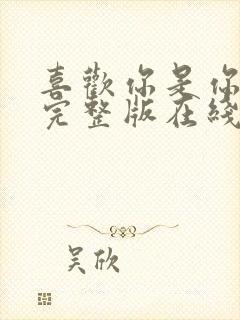 喜歡你是你
完整版在綫
吴欣